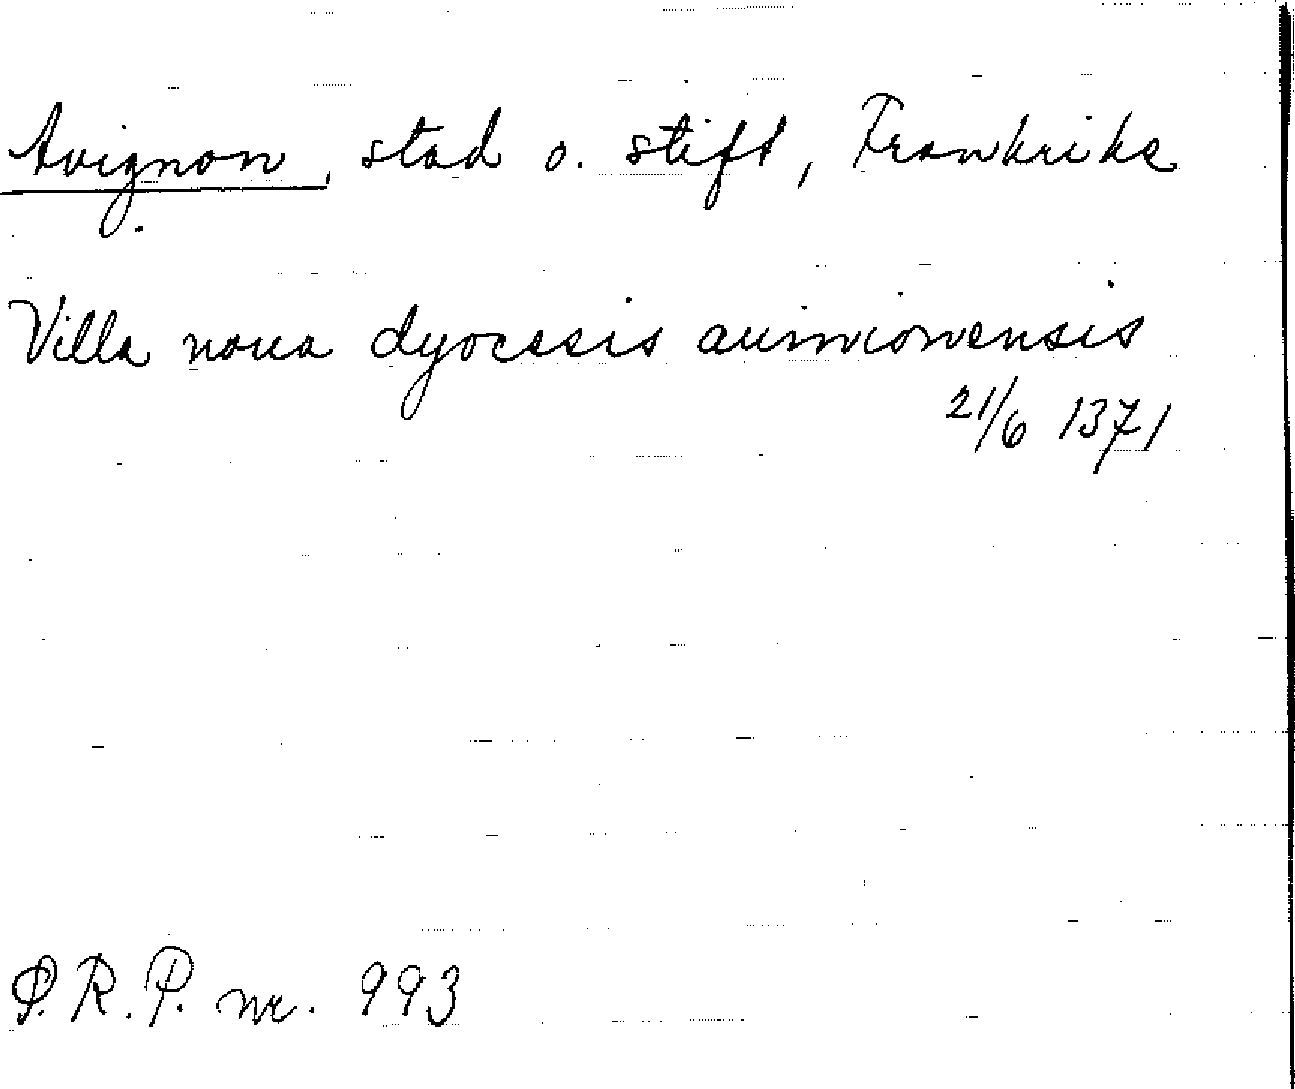 Avignon, stad o. stift, Frankrike
Villa noua dyocesis auinionensis
21/6 1371
P.R.P. nr. 993